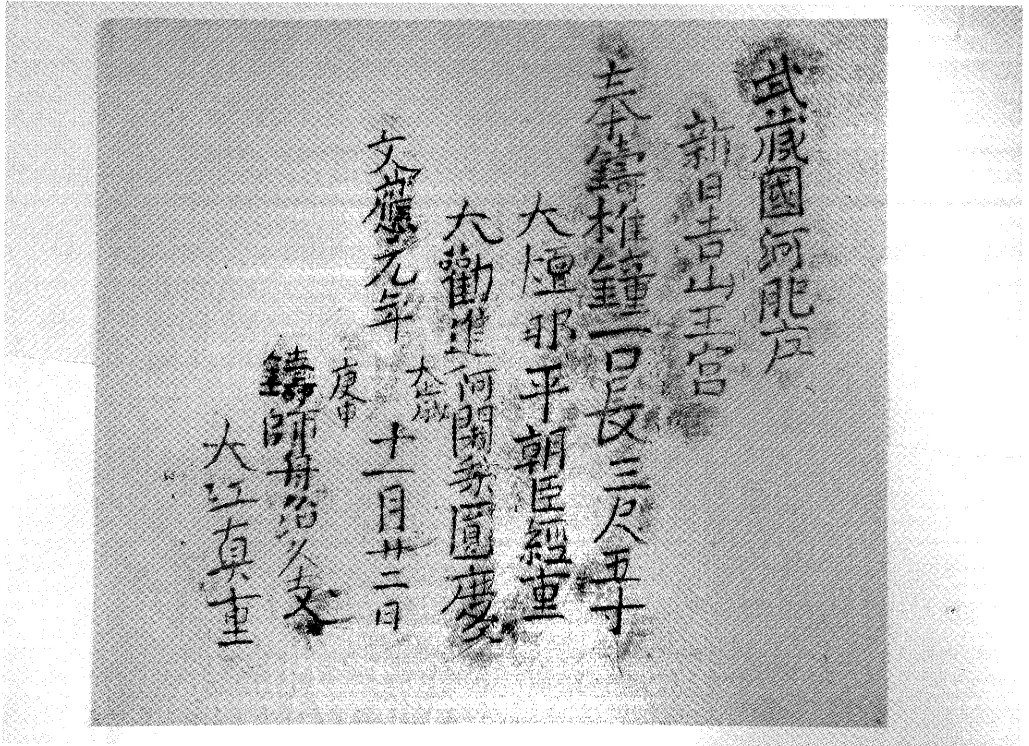 武蔵國河肥庄
新日吉山王宮
奉鑄椎鐘一口長三尺五寸
大檀那平朝臣經重
大勸進阿闍梨圓慶
文應元年大歳庚申十一月廿二日
鑄師丹治久友
大江真重